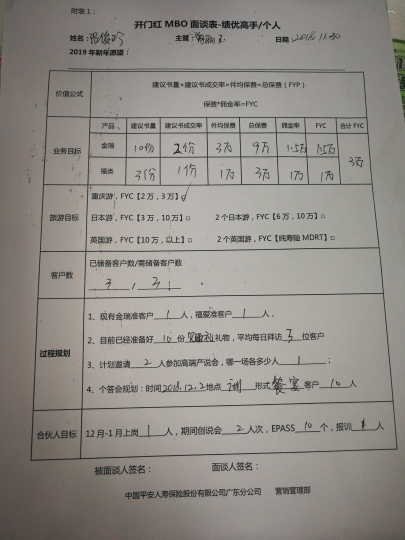 附表1：
开门红MBO面谈表-绩优高手/个人
姓名： 主管： 日期：2018.11.30
2019年新年愿望：
价值公式
建议书量×建议书成交率×件均保费=总保费（FYP）
保费*佣金率=FYC
业务目标
产品 建议书量 建议书成交率 件均保费 总保费 佣金率 FYC 合计FYC
金瑞 10份 2份 3万 9万 1.5万 1.5万 3万
福类 3份 1份 1万 3万 1万 1万
旅游目标
重庆游，FYC【2万，3万】
日本游，FYC【3万，10万】□ 2个日本游，FYC【6万，10万】□
英国游，FYC【10万，以上】□ 2个英国游，FYC【纯寿险MDRT】□
客户数
已储备客户数/需储备客户数
过程规划
1、现有金瑞准客户 1 人，福爱准客户 1 人，
2、目前已经准备好 10 份 礼物，平均每日拜访 3 位客户
3、计划邀请 2 人参加高端产说会，哪一场各多少人 1 ；
4、个答会规划：时间2018.12.2地点 形式 客户 10 人
合伙人目标
12月-1月上岗 1 人，期间创说会 2 人次，EPASS 10 个，报训 人
被面谈人签名： 面谈人签名：
中国平安人寿保险股份有限公司广东分公司 营销管理部